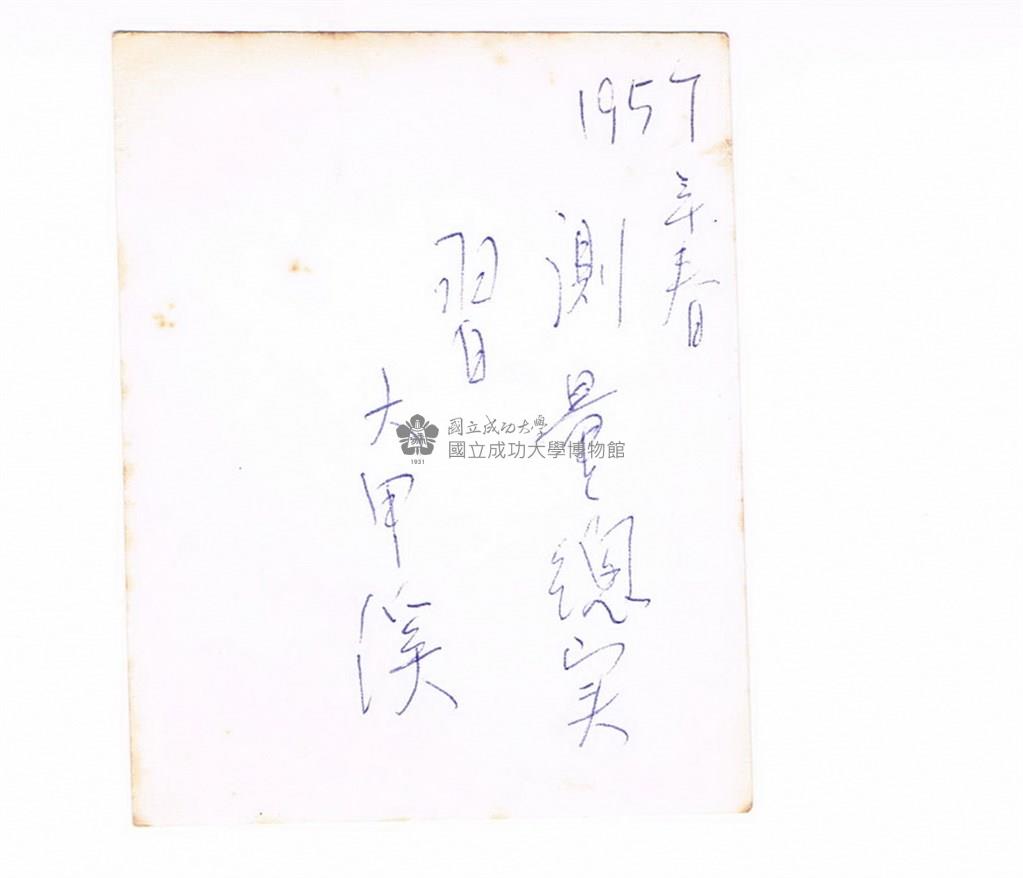 1957年春
測量總实
習
大甲溪
國立成功大學
國立成功大學博物館
1931